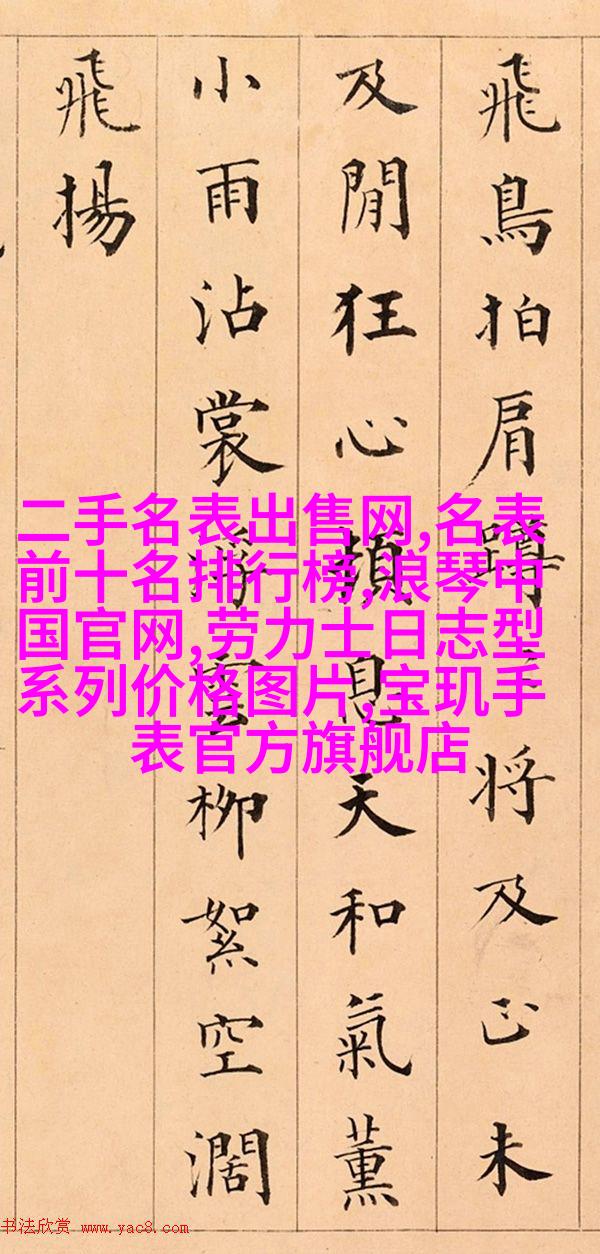 飛鳥拍肩蹲將及未
及閒狂心頓息天和氣薰
小雨沾裳雲柳絮空濶
飛揚
二手名表出售网,名表
前十名排行榜,浪琴中
国官网,劳力士日志型
系列价格图片,宝玑手
表官方旗舰店
书法欣赏 www.yac8.com